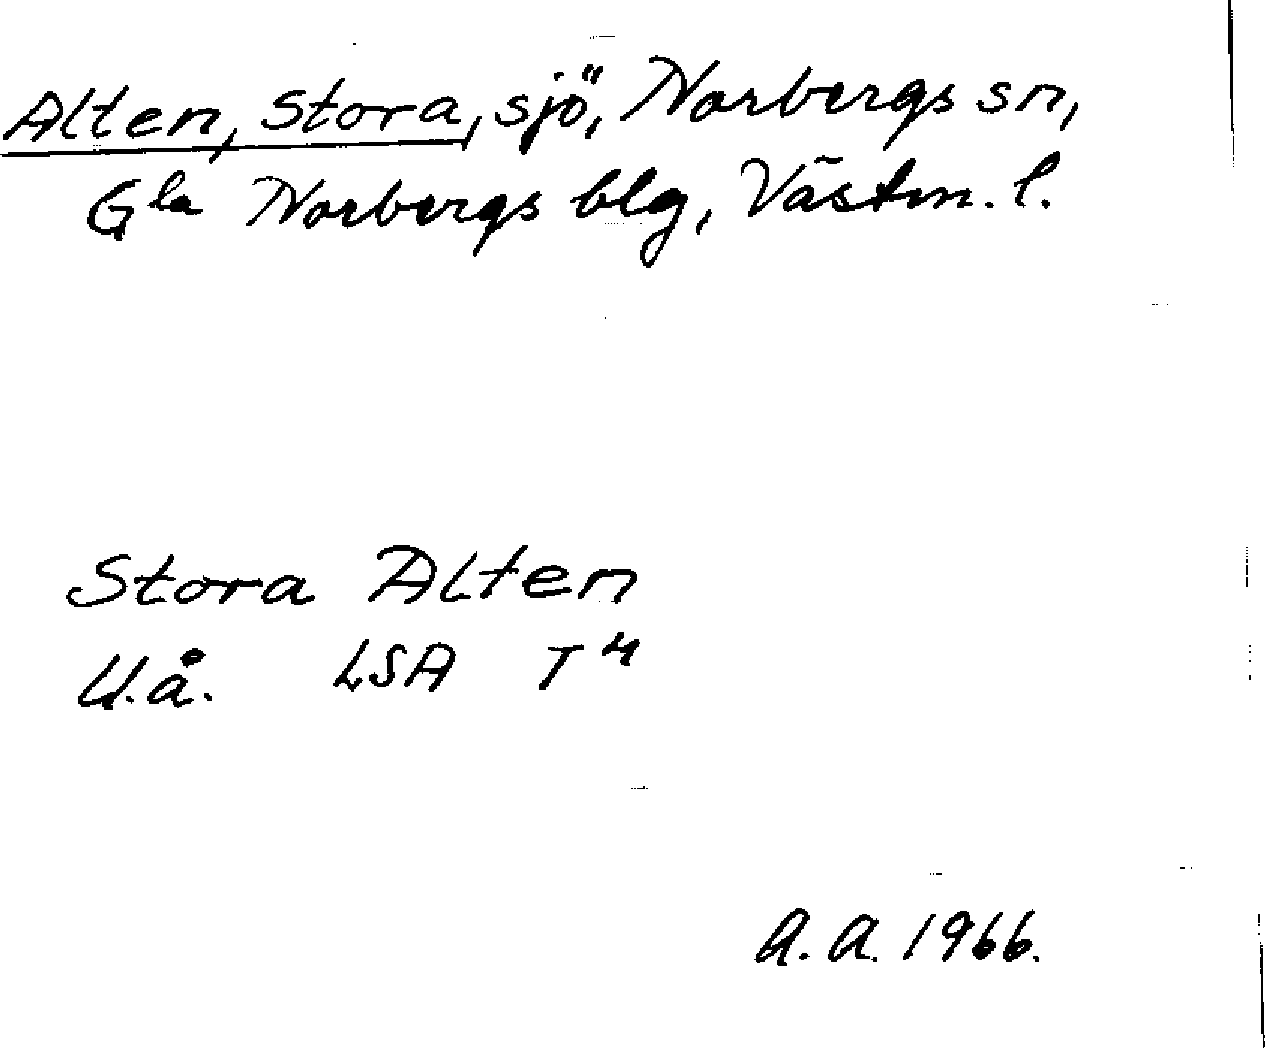 Alten, Stora, sjö, Norbergs sn,
Gla Norbergs blg, Västm. l.
Stora Alten
U.å. LSA T4
A.A. 1966.